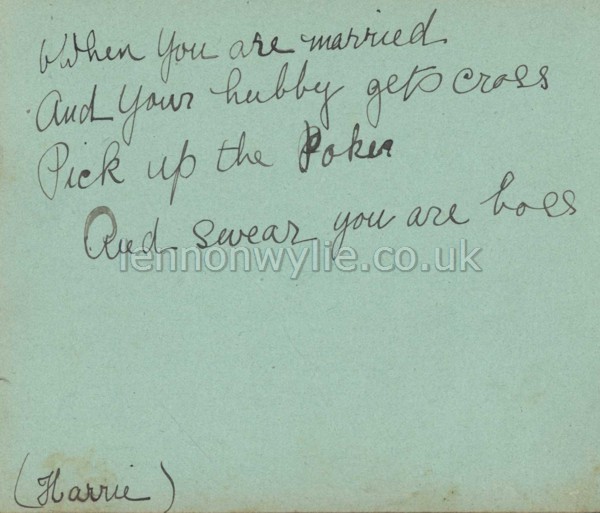 When you are married
And Your hubby gets cross
Pick up the Poker
And swear you are boss
lennonwylie.co.uk
(Harrie)